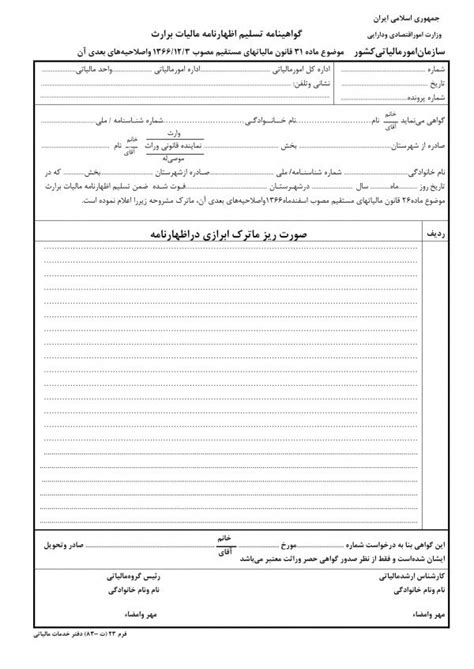 جمهوری اسلامی ایران
وزارت امور اقتصادی ودارایی
گواهینامه تسلیم اظهارنامه مالیات برارث
سازمان امور مالیاتی کشور
موضوع ماده ۳۱ قانون مالیاتهای مستقیم مصوب ۱۳۶۶/۱۲/۳ واصلاحیه‌های بعدی آن
شماره ........ اداره کل امورمالیاتی ........ اداره امور مالیاتی ........ واحد مالیاتی ........
تاریخ ........ نشانی وتلفن: ........
شماره پرونده ........
گواهی می‌نماید خانم / آقای نام ........ نام خانوادگی ........ شماره شناسنامه / ملی ........
صادره از شهرستان ........ بخش ........ وارث / نماینده قانونی وراث / موصی‌له خانم / آقای نام ........
نام خانوادگی ........ شماره شناسنامه/ ملی ........ صادره ازشهرستان ........ بخش ........ که در
تاریخ روز ........ ماه ........ سال ........ درشهرستان ........ فوت شده ضمن تسلیم اظهارنامه مالیات برارث
موضوع ماده۲۶ قانون مالیاتهای مستقیم مصوب اسفندماه۱۳۶۶واصلاحیه‌های بعدی آن، ماترک مشروحه زیررا اعلام نموده است.
ردیف
صورت ریز ماترک ابرازی دراظهارنامه
این گواهی بنا به درخواست شماره ........ مورخ ........ خانم / آقای ........ صادر وتحویل
ایشان شده‌است و فقط از نظر صدور گواهی حصر وراثت معتبر می‌باشد.
کارشناس ارشدمالیاتی
رئیس گروه‌مالیاتی
نام ونام خانوادگی
نام ونام خانوادگی
مهر وامضاء
مهر وامضاء
فرم ۲۳ (ت –۸۳) دفتر خدمات مالیاتی